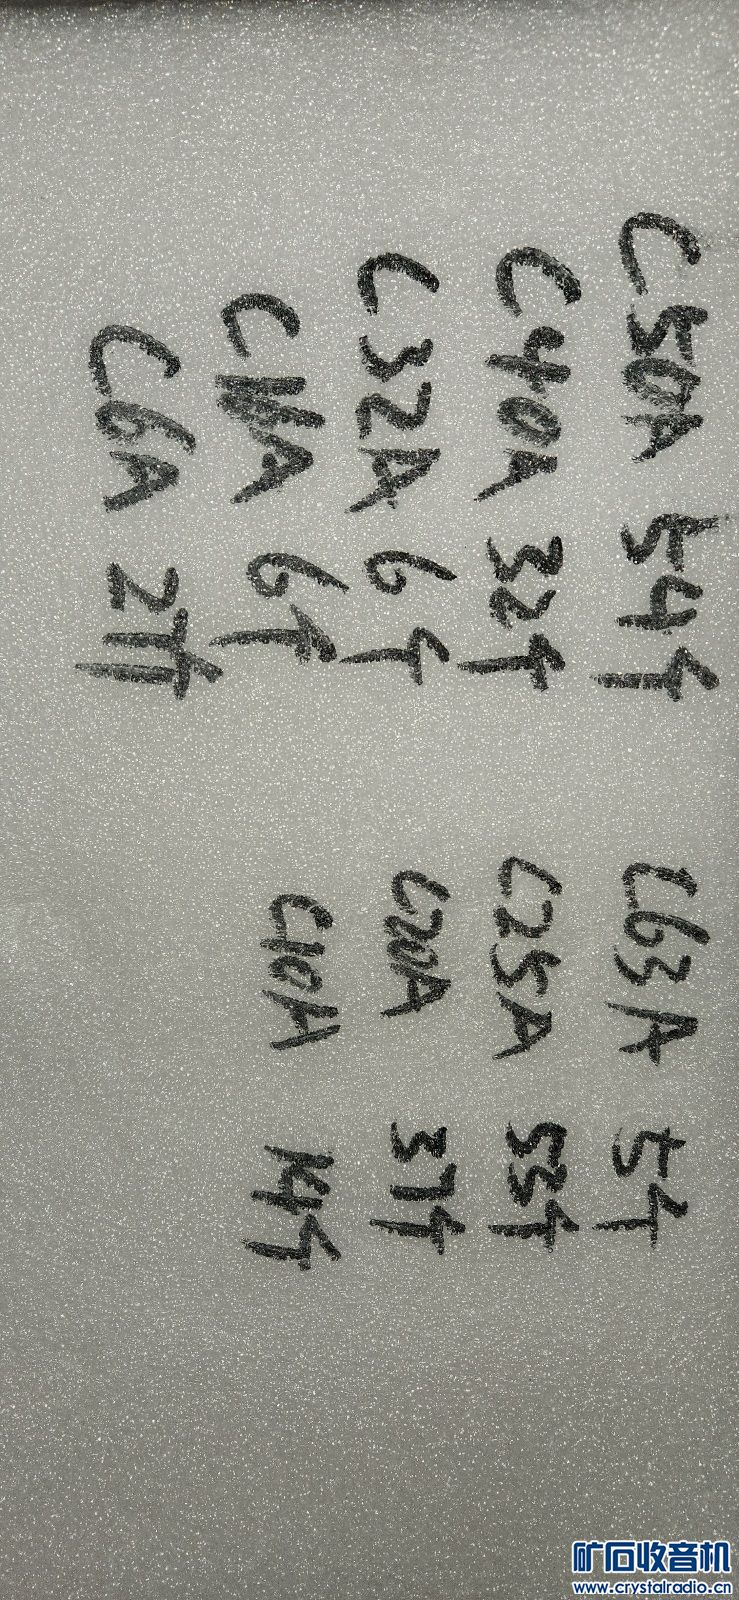 C50A 54个 C63A 5个
C40A 32个 C25A 53个
C32A 6个 C20A 37个
C16A 6个 C10A 14个
C6A 21个
矿石收音机
www.crystalradio.cn